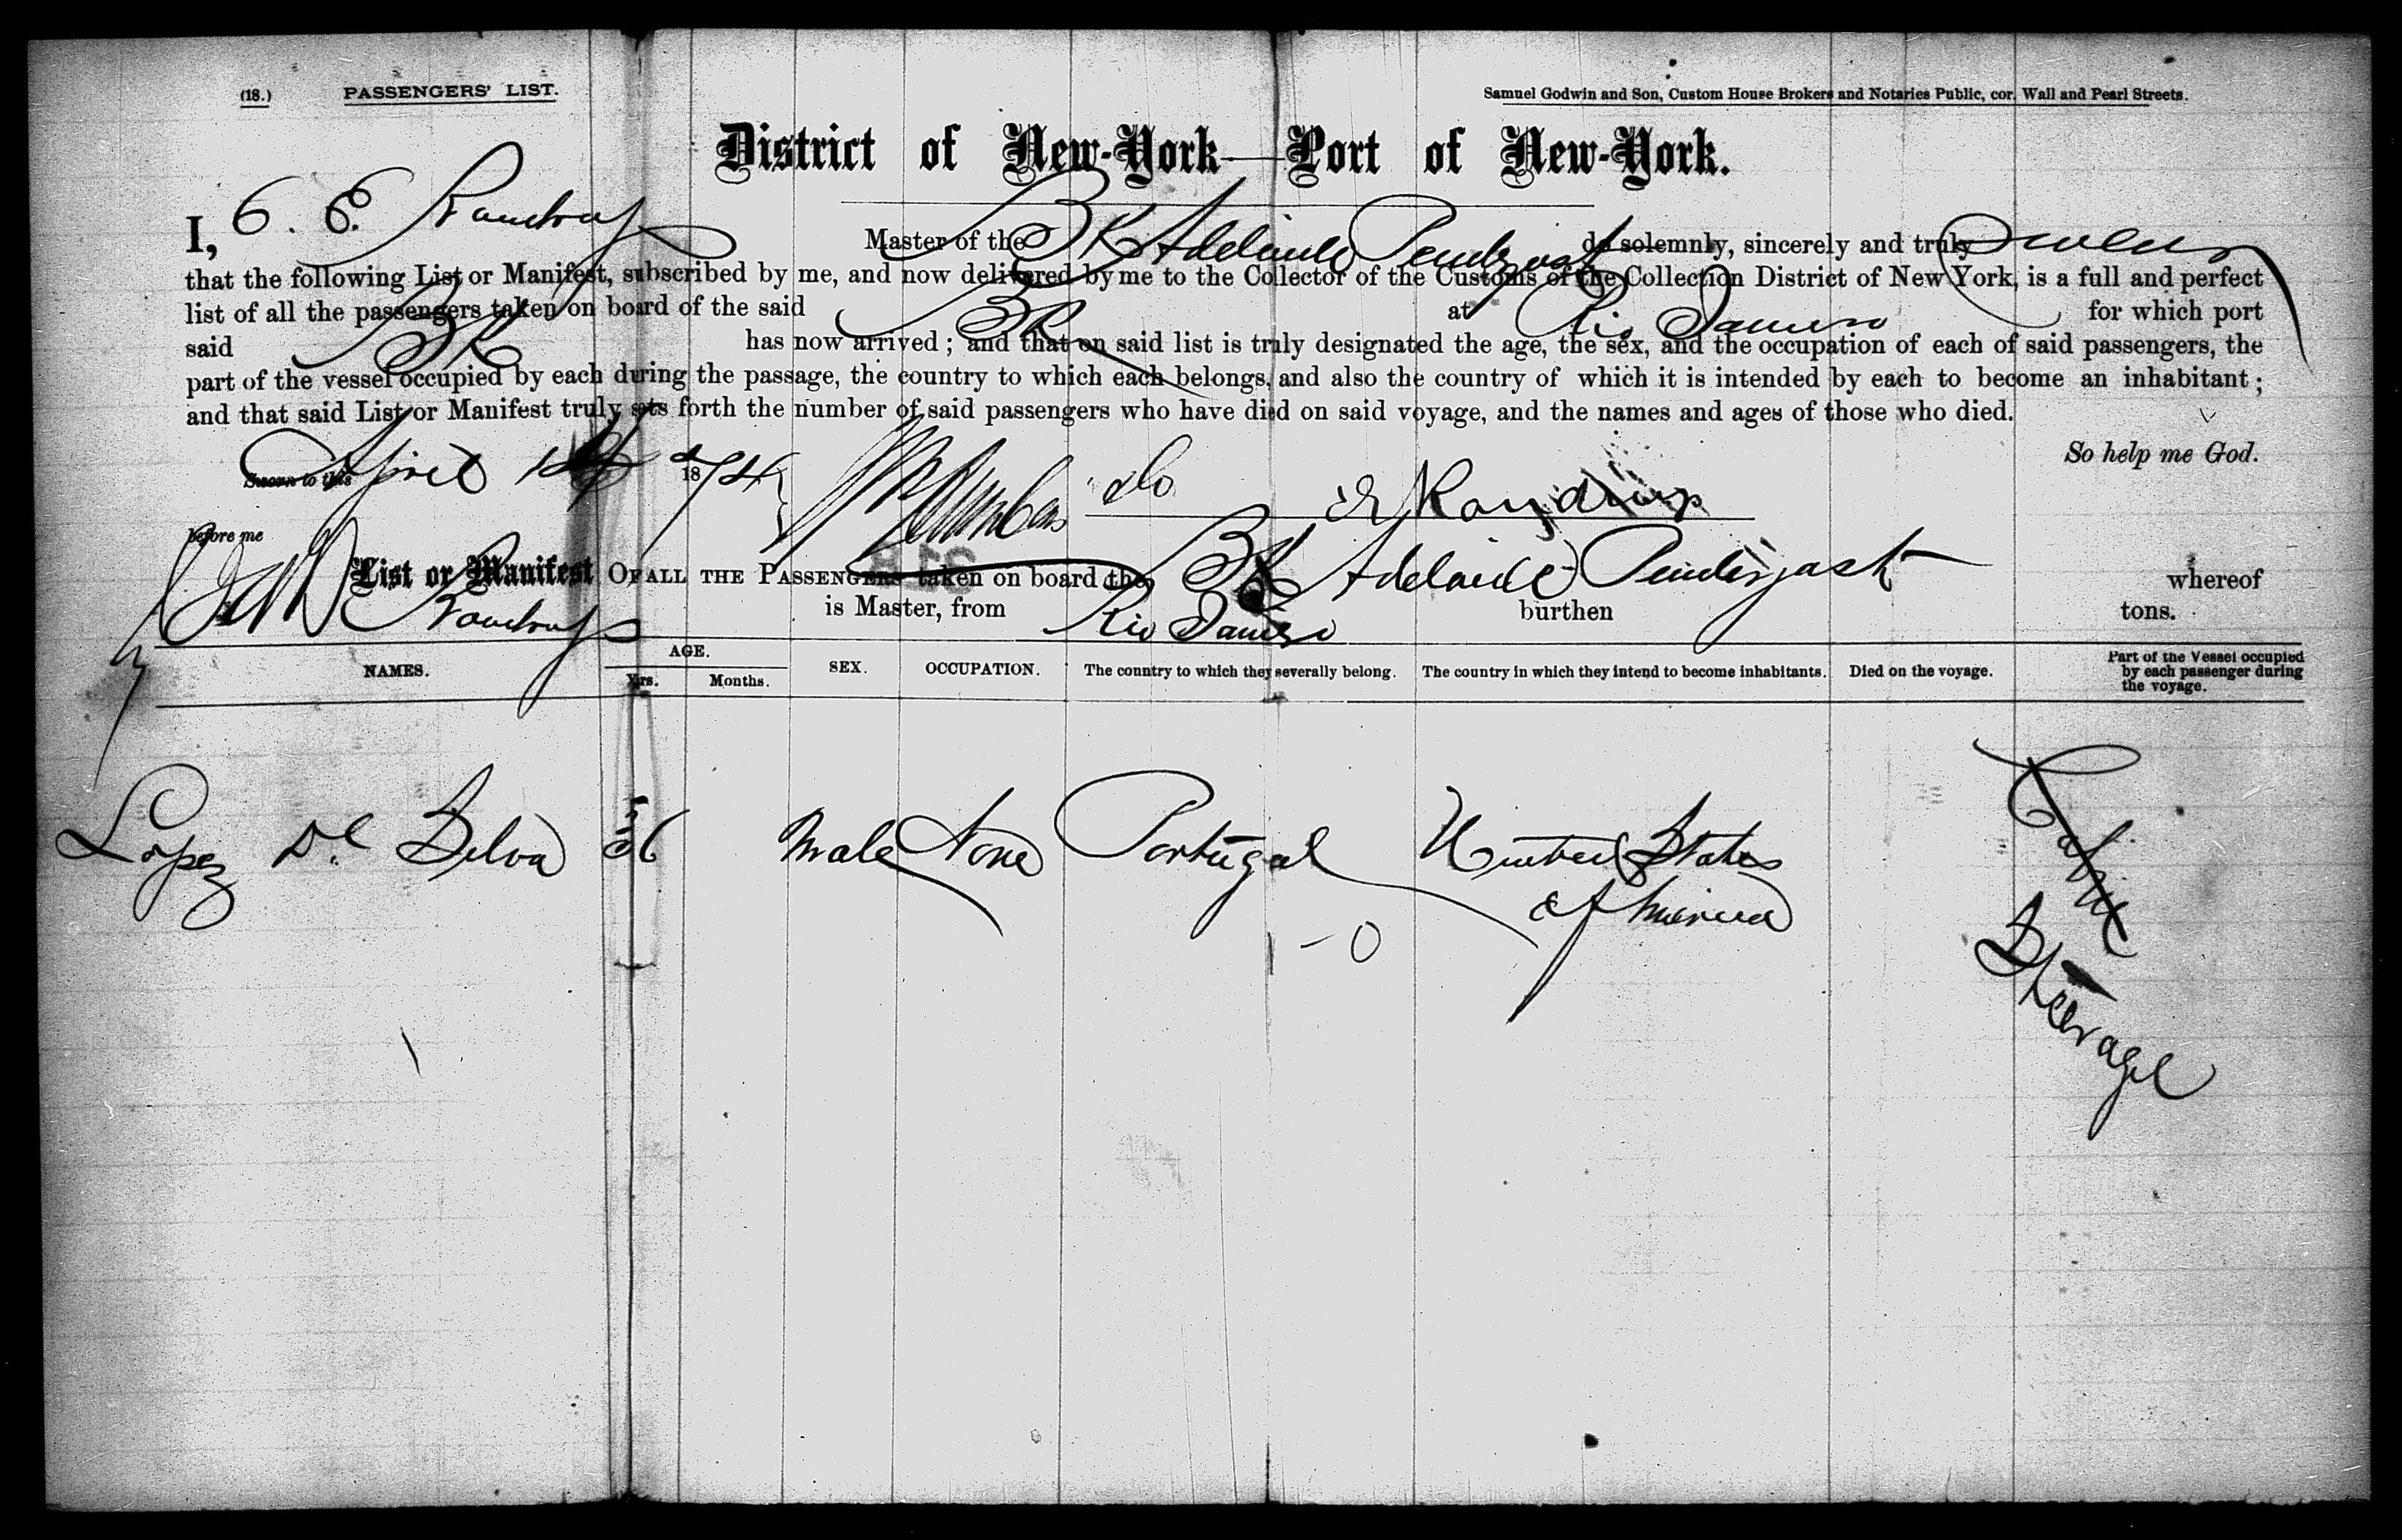 (18.) PASSENGERS' LIST. Samuel Godwin and Son, Custom House Brokers and Notaries Public, cor. Wall and Pearl Streets.
District of New-York—Port of New-York.
I, Master of the BK Adelaide Pendergast do solemnly, sincerely and truly Swear
that the following List or Manifest, subscribed by me, and now delivered by me to the Collector of the Customs of the Collection District of New York, is a full and perfect
list of all the passengers taken on board of the said BK at Rio Janeiro for which port
said BK has now arrived; and that on said list is truly designated the age, the sex, and the occupation of each of said passengers, the
part of the vessel occupied by each during the passage, the country to which each belongs, and also the country of which it is intended by each to become an inhabitant;
and that said List or Manifest truly sets forth the number of said passengers who have died on said voyage, and the names and ages of those who died.
So help me God.
Sworn to this April 1874
before me
List or Manifest OF ALL THE PASSENGERS taken on board the BK Adelaide Pendergast whereof
is Master, from Rio Janeiro burthen tons.
NAMES. AGE. Yrs. Months. SEX. OCCUPATION. The country to which they severally belong. The country in which they intend to become inhabitants. Died on the voyage. Part of the Vessel occupied by each passenger during the voyage.
Lopez De Silva 36 Male None Portugal United States Cabin
of America Steerage